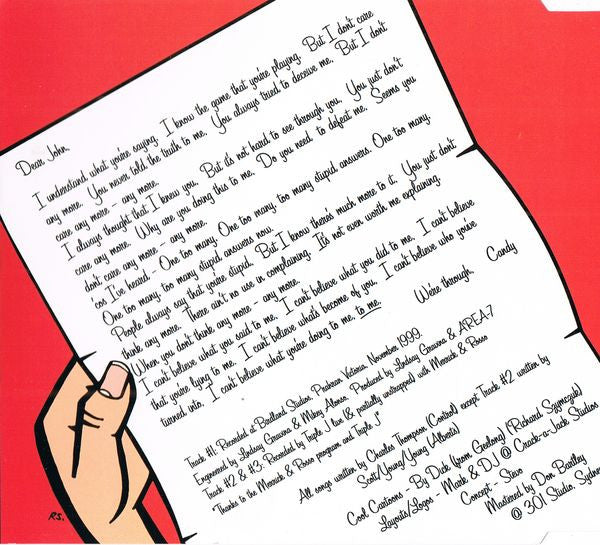 Dear John
I understand what you're saying. I know the game that you're playing. But I don't care
any more. You never told the truth to me. You always tried to deceive me. But I don't
care any more - any more.
I always thought that I knew you. But it's not hard to see through you. You just don't
care any more. Why are you doing this to me. Do you need to defeat me. Seems you
don't care any more - any more.
'cos I've heard - One too many. One too many, too many stupid answers. One too many.
One too many, too many stupid answers now.
People always say that you're stupid. But I know there's much more to it. You just don't
think any more. There ain't no use in complaining. It's not even worth me explaining.
When you don't think any more - any more.
I can't believe what you said to me. I can't believe what you did to me. I can't believe
that you're lying to me. I can't believe what's become of you. I can't believe who you've
turned into. I can't believe what you're doing to me, to me.
We're through. Candy
Track #1: Recorded at Birdland Studios. Prahran Victoria. November 1999.
Engineered by Lindsay Gravina & Mikey Alonso. Produced by Lindsay Gravina & AREA-7
Track #2 & #3: Recorded by Triple J live (& partially unstrapped) with Merrick & Rosso
"Thanks to the Merrick & Rosso program and Triple J"
All songs written by Charles Thompson (Control) except Track #2 written by
Scott/Young/Young (Alberts)
Cool Cartoons - By Dick (from Geelong) (Richard
Layouts/Logos - Mark & DJ @ Crack-a-Jack Studios
Concept - Stevo
Mastered by Don Bartley
@ 301 Studio. Sydney
RS.